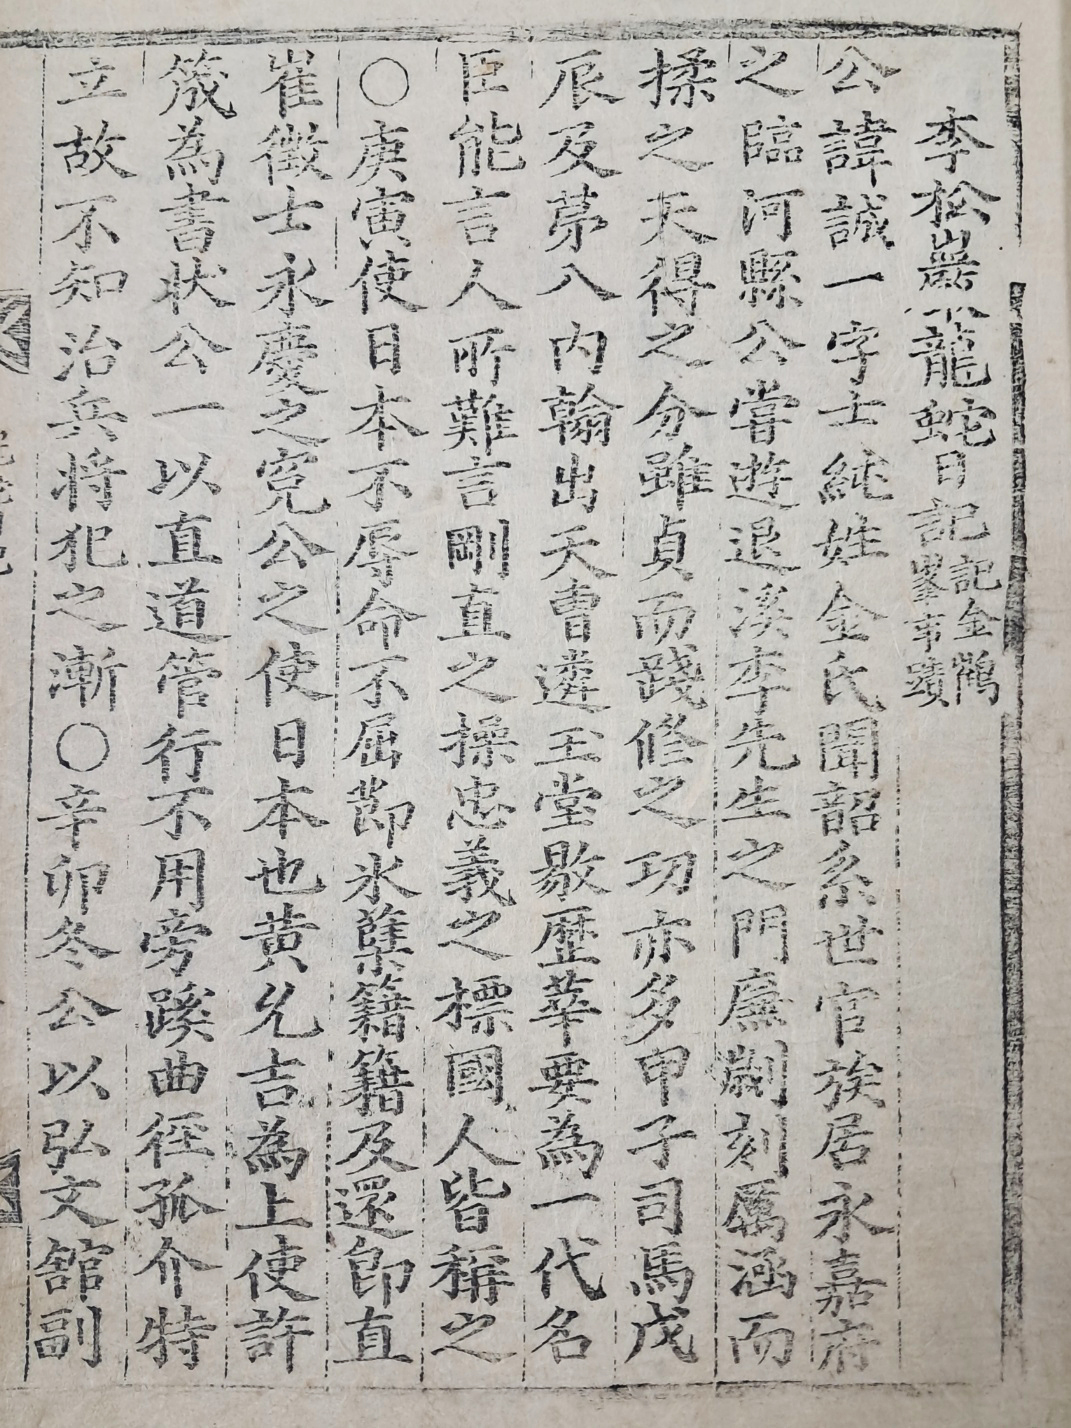 李松巖龍蛇日記
記金鶴
峯事蹟
公諱誠一字士純姓金氏聞韶系世官族居永嘉府
之臨河縣公嘗遊退溪李先生之門廉劌刻厲涵而
揉之天得之分雖貞而踐修之功亦多甲子司馬戊
辰及苐八內翰出天曹遴玉堂敭歷華要為一代名
臣能言人所難言剛直之操忠義之標國人皆稱之
○庚寅使日本不辱命不屈節氷蘖籍籍及還卽直
崔徵士永慶之寃公之使日本也黃允吉為上使許
筬為書狀公一以直道管行不用旁蹊曲徑孤介特
立故不知治兵將犯之漸○辛卯冬公以弘文舘副